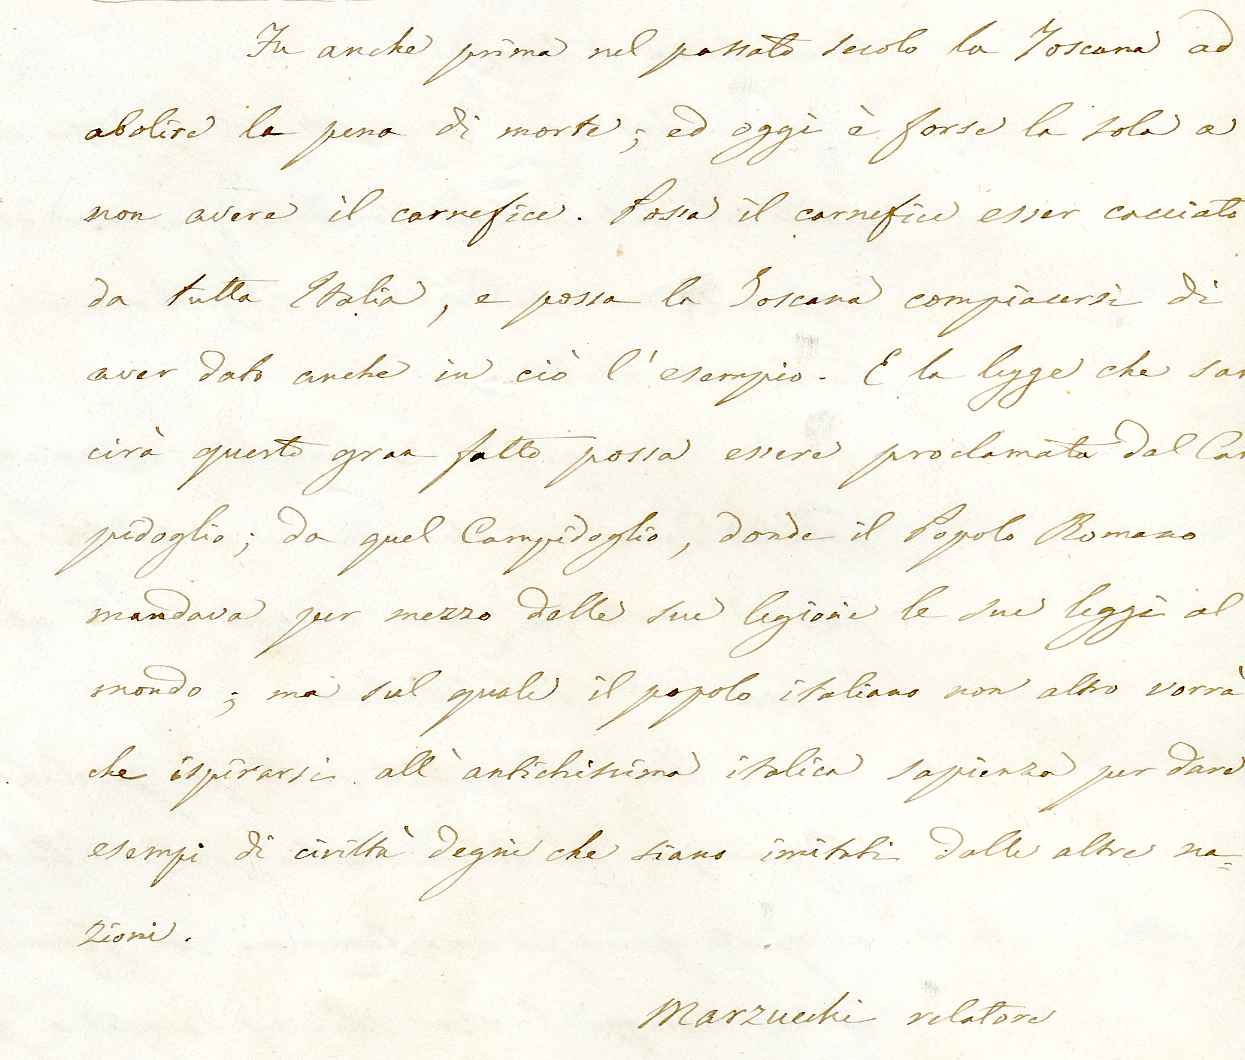 Fu anche prima nel passato secolo la Toscana ad
abolire la pena di morte; ed oggi è forse la sola a
non avere il carnefice. Possa il carnefice esser cacciato
da tutta Italia, e possa la Toscana compiacersi di
aver dato anche in ciò l'esempio. E la legge che san
cirà questo gran fatto possa essere proclamata dal Cam
pidoglio; da quel Campidoglio, donde il Popolo Romano
mandava per mezzo delle sue legioni le sue leggi al
mondo; ma sul quale il popolo italiano non altro vorrà
che ispirarsi all'antichissima italica sapienza per dare
esempi di civiltà degni che siano imitati dalle altre na=
zioni.
Marzucchi relatore